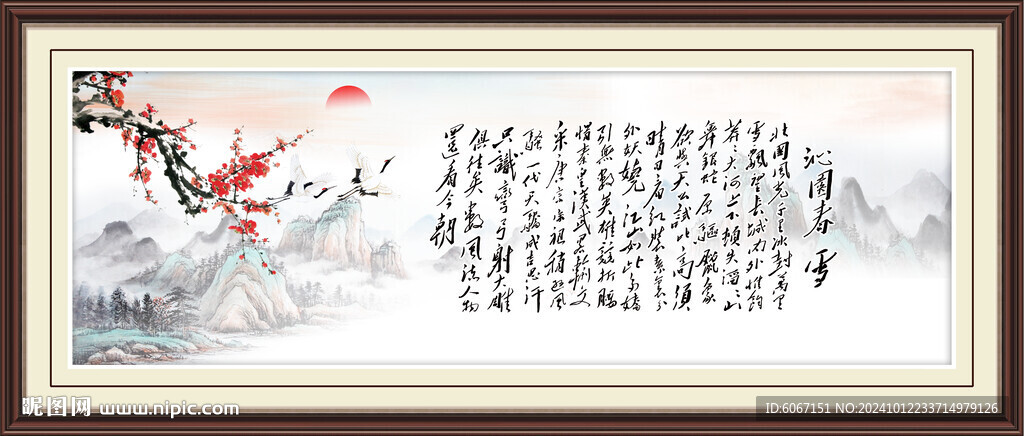 沁園春雪
北國風光千里冰封萬里
雪飘望長城内外惟餘
莽々大河上下頓失滔々山
舞銀蛇原驱臘象
欲與天公試比高須
晴日看红裝素裹分
外妖娆江山如此多嬌
引無數英雄競折腰
惜秦皇漢武略輸文
采唐宗宋祖稍逊風
騷一代天驕成吉思汗
只識彎弓射大雕
俱往矣數風流人物
還看今朝
昵图网 www.nipic.com
ID:6067151 NO:20241012233714979126